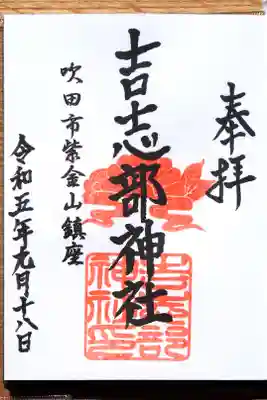 奉拝
吉志部神社
吹田市紫金山鎮座
令和五年九月十八日
吉志部
神社印